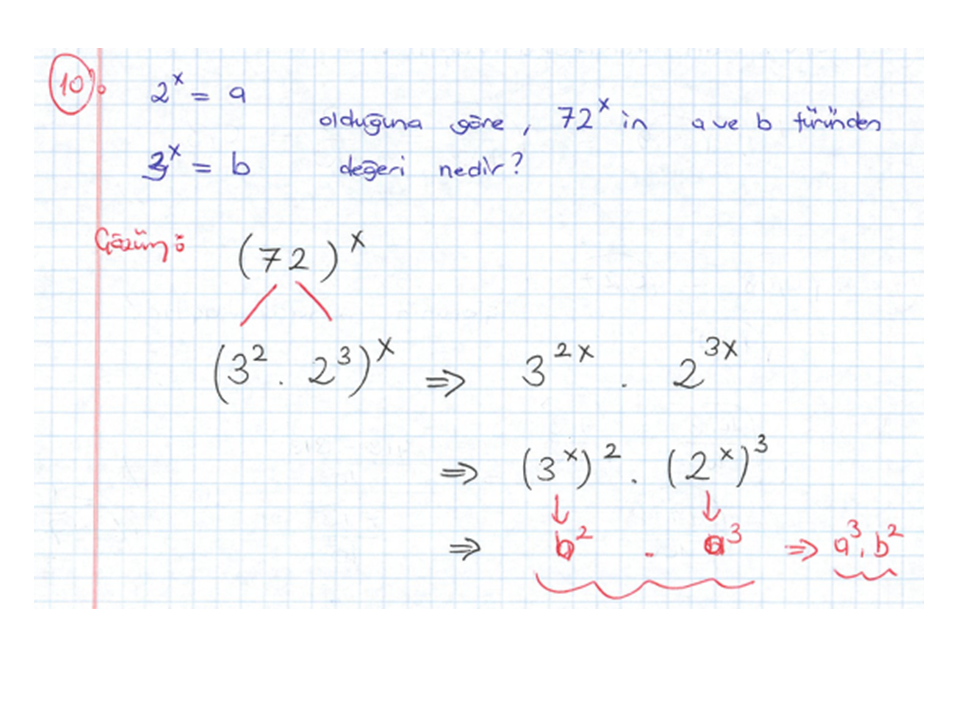 10:
2^x = a
olduğuna göre, 72^x in a ve b türünden
3^x = b değeri nedir?
Çözüm: (72)^x
(3^2 . 2^3)^x ⇒ 3^2x . 2^3x
⇒ (3^x)^2 . (2^x)^3
↓ ↓
⇒ b^2 . a^3 ⇒ a^3 . b^2